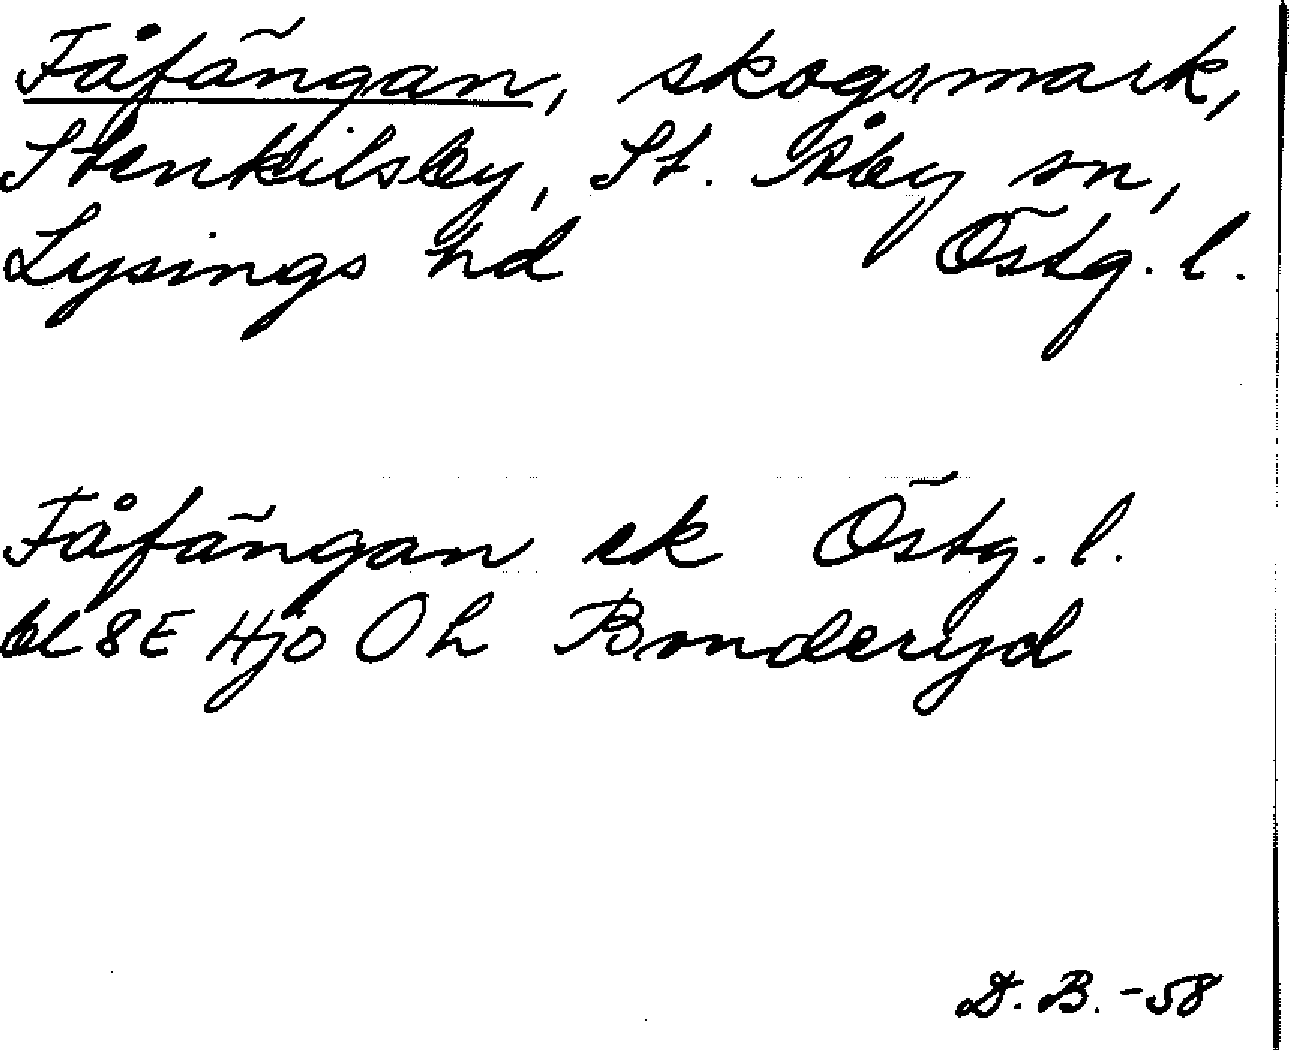 Fåfängan, skogsmark,
Stenkilsby, St. Åby sn,
Lysings hd Östg. l.
Fåfängan ek Östg. l.
bl 8E Hjo Oh Bonderyd
D. B. -58